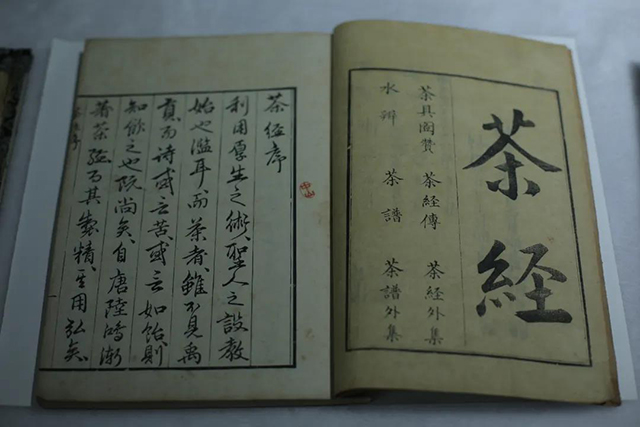 茶経
茶具圖贊 茶経傳 茶経外集
水辨 茶譜 茶譜外集
茶經序
利用厚生之術聖人之設教
始也濫耳而茶者雖不見禹
貢而詩或云苦或云如飴則
知飲之也既尚矣自唐陸鴻漸
著茶經而其製精其用弘矣